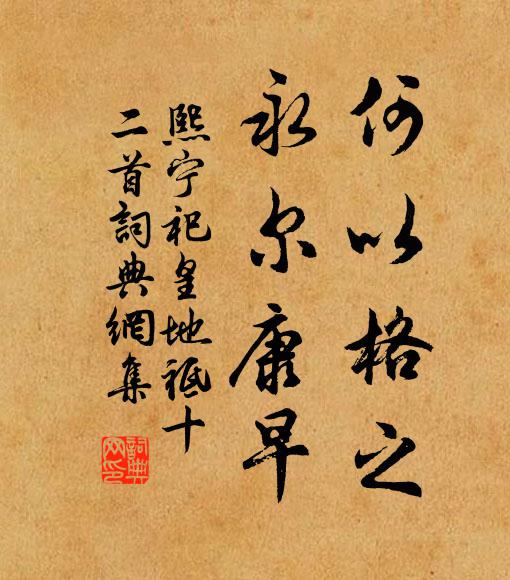 何以格之
永尔康早
熙宁祀皇地祗十
二首詞典網集